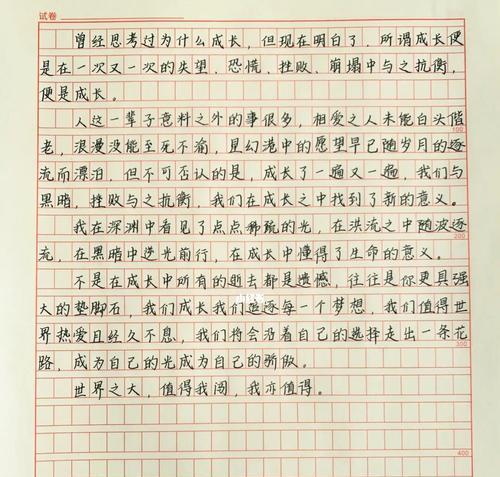 试卷
曾经思考过为什么成长，但现在明白了，所谓成长便
是在一次又一次的失望、恐慌、挫败、崩塌中与之抗衡，
便是成长。
人这一辈子意料之外的事很多，相爱之人未能白头偕
老，浪漫没能至死不渝，星幻港中的愿望早已随岁月的逐
100
流而漂泊，但不可否认的是，成长了一遍又一遍，我们与
黑暗，挫败与之抗衡，我们在成长之中找到了新的意义。
我在深渊中看见了点点稀疏的光，在洪流之中随波逐
200
流，在黑暗中逆光前行，在成长中懂得了生命的意义。
不是在成长中所有的逝去都是遗憾，往往是你更具强
大的垫脚石，我们成长我们追逐每一个梦想，我们值得世
界热爱且经久不息，我们将会沿着自己的选择走出一条花
300
路，成为自己的光成为自己的骄傲。
世界之大，值得我闯，我亦值得。
400